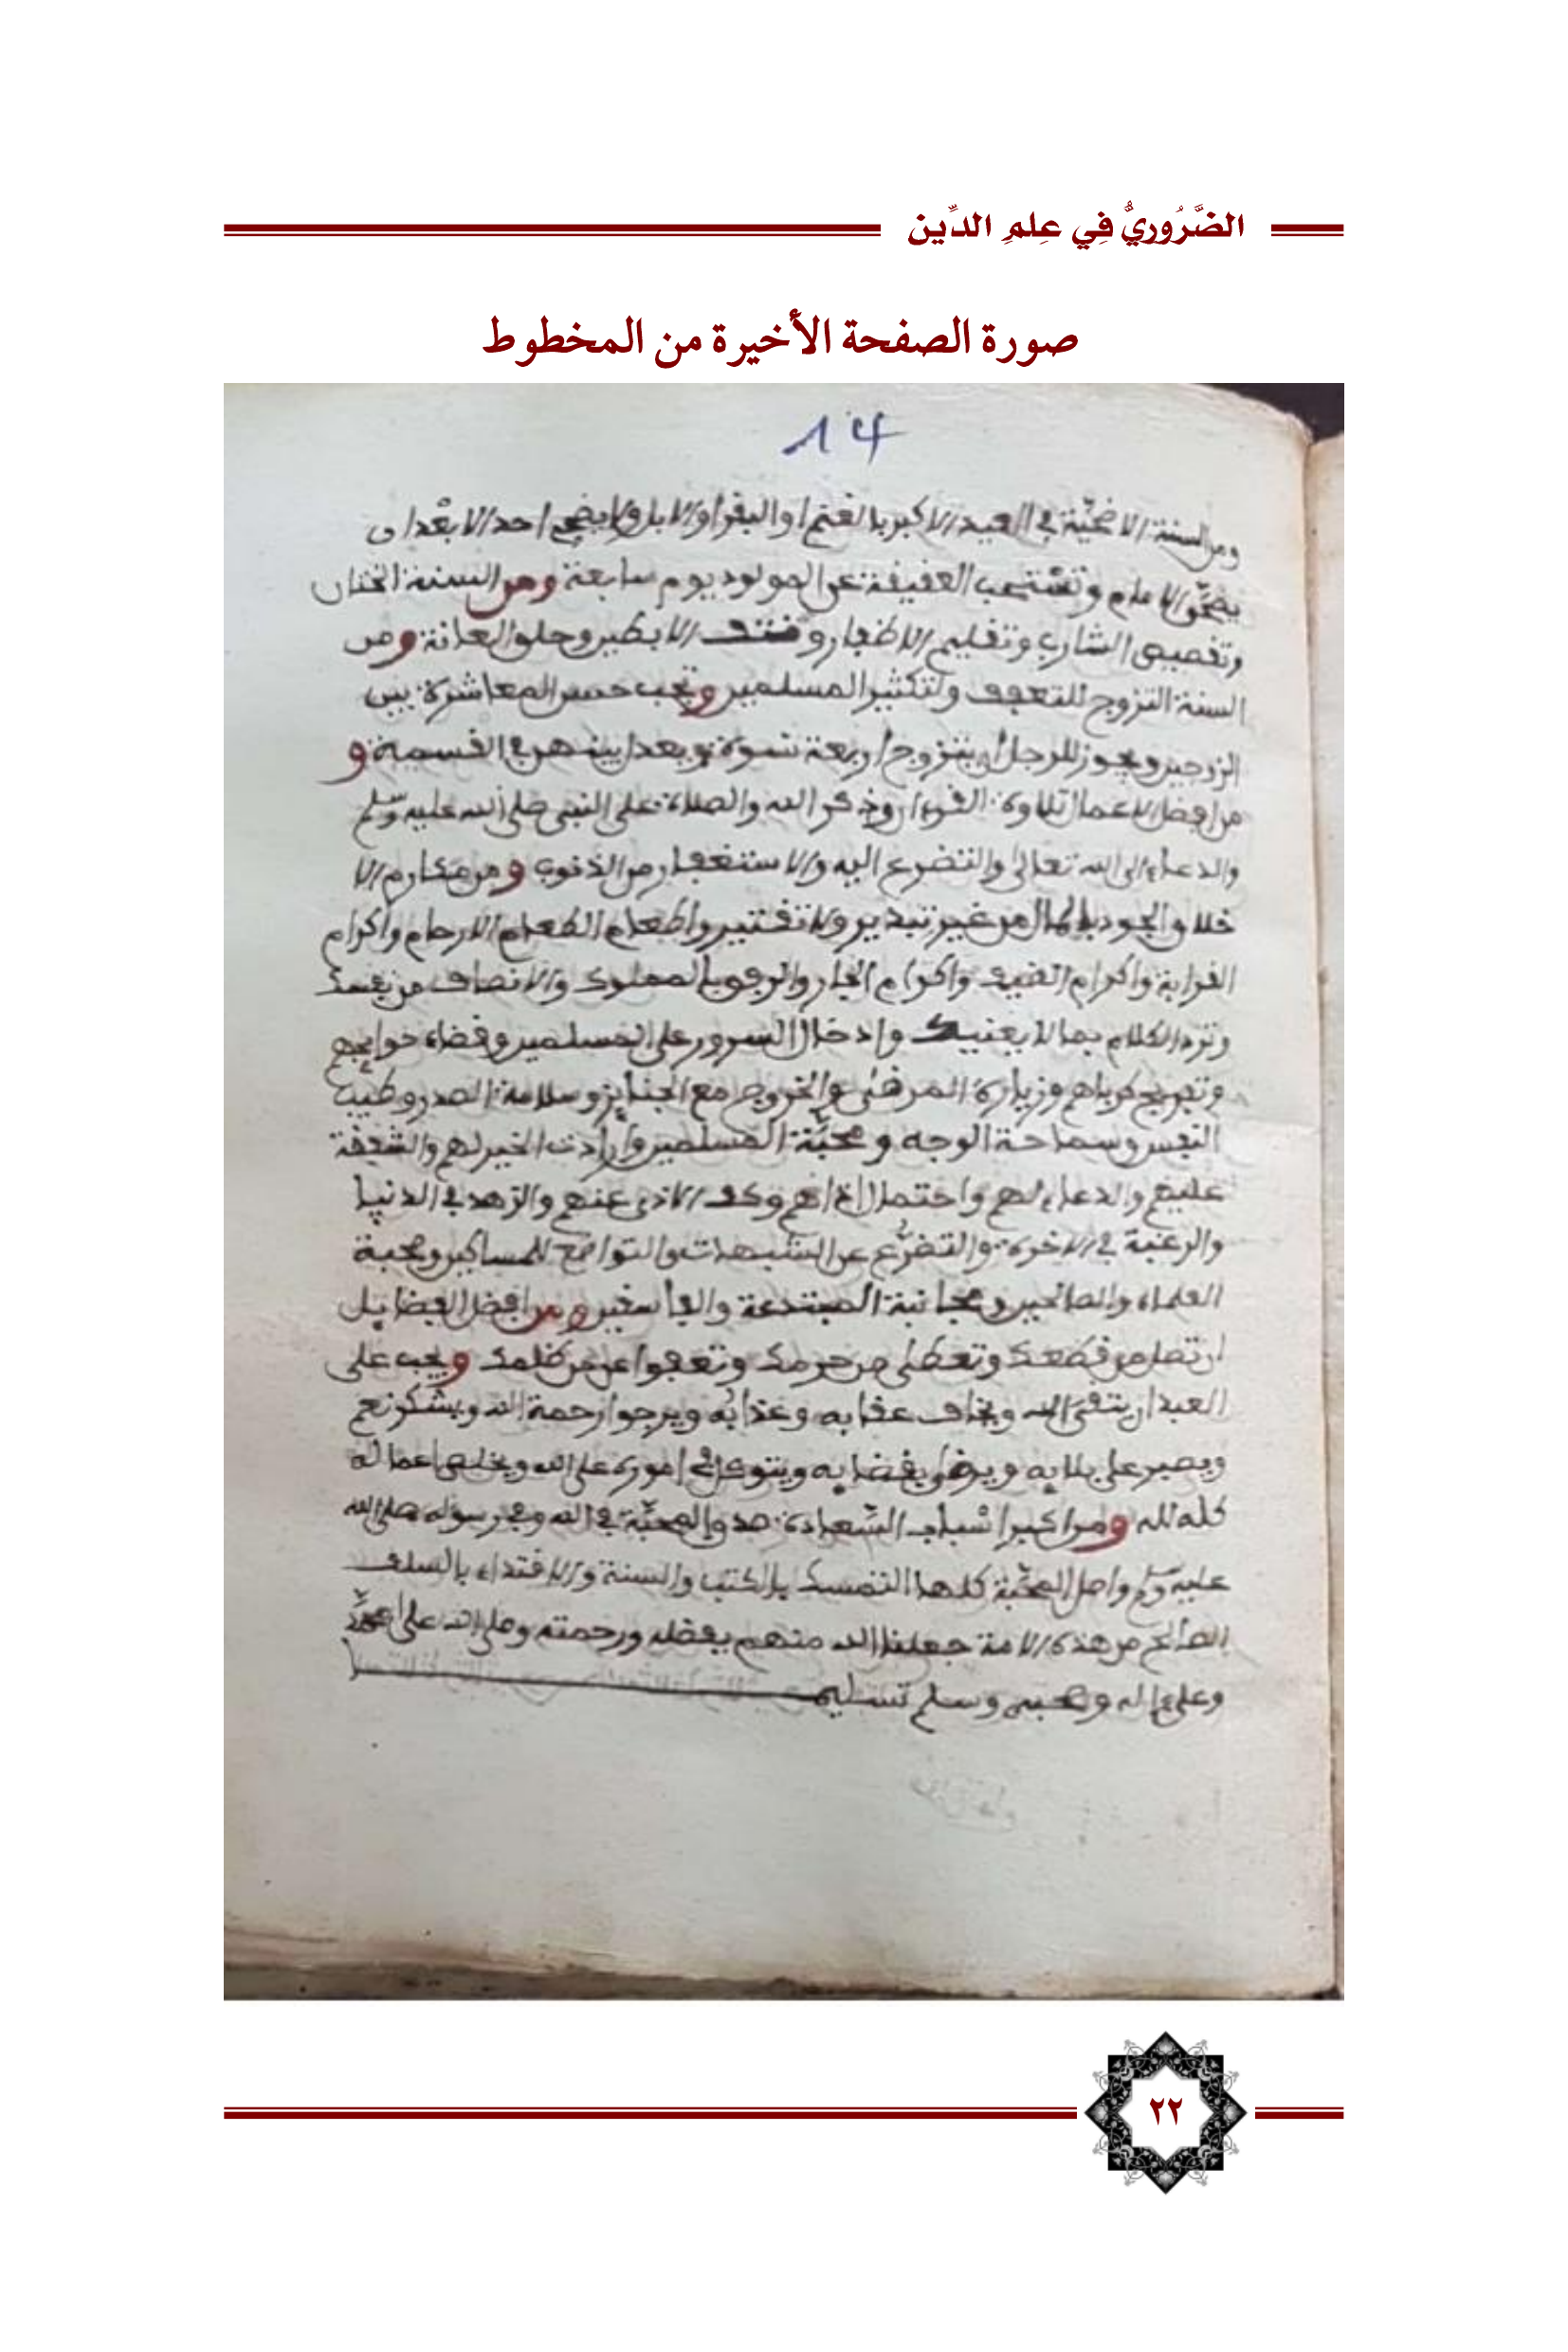 الضَّرُوريُّ فِي عِلمِ الدِّين
صورة الصفحة الأخيرة من المخطوط
14
ومن السنة الاضحيّة في العيد الاكبر بالغنم او البقر او الابل ولا يضحي احد الا بعد ان
يضحّي الامام وتستحب العقيقة عن المولود يوم سابعة ومن السنة الختان
وتقصيص الشارب وتقليم الاظفار ونتف الابطين وحلق العانة ومن
السنة التزوج للتعفف ولتكثير المسلمين وتجب حسن المعاشرة بين
الزوجين ويجوز للرجل ان يتزوج اربعة نسوة ويعدل بينهن في القسمة و
من افضل الاعمال تلاوة القرءان وذكر الله والصلاة على النبي صلى الله عليه وسلم
والدعاء الى الله تعالى والتضرع اليه والاستغفار من الذنوب ومن مكارم الا
خلاق الجود بالمال من غير تبذير ولا تقتير واطعام الطعام الارحام واكرام
القرابة واكرام الضيف واكرام الجار والرفق بالمملوك والانصاف من نفسك
وترك الكلام بما لا يعنيك وادخال السرور على المسلمين وقضاء حوايجهم
وتفريج كرباهم وزيارة المرضى والخروج مع الجنايز وسلامة الصدر وطيب
النفس وسماحة الوجه ومحبّة المسلمين وارادت الخير لهم والشفقة
عليهم والدعاء لهم واحتمال اذاهم وكف الاذى عنهم والزهد في الدنيا
والرغبة في الاخرة والتضرّع عن الشبهات والتواضع للمساكين ومحبة
العلماء والصالحين ومجانبة المبتدعة والفاسقين ومن افضل الفضايل
ان تصل من قطعك وتعطى من حرمك وتعفوا عن من ظلمك ويجب على
العبد ان يتقى الله ويخاف عقابه وعذابه ويرجوا رحمة الله ويشكر نعم
ويصبر على بلايه ويرضى بقضايه ويتوكل في اموره على الله ويخلص اعماله
كله لله ومن اكبر اسباب السّعادة صدق المحبّة في الله وفي رسوله صلى الله
عليه وسلم واصل المحبّة كلها التمسك بالكتب والسنة والاقتداء بالسلف
الصالح من هذه الامة جعلنا الله منهم بفضله ورحمته وصلى الله على محمّد
وعلى ءاله وصحبه وسلم تسليما
٢٢